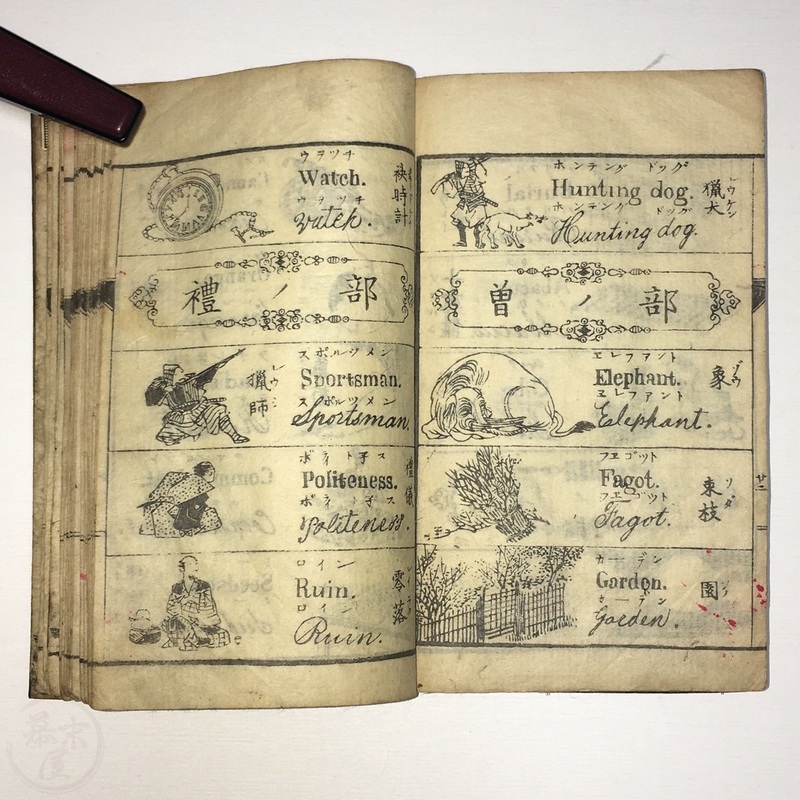 ウヲツチ
Watch.
ウヲツチ
Watch.
袂時計
禮ノ部
スポルツメン
Sportsman.
スポルツメン
Sportsman.
獵師
レウシ
Politeness.
Politeness.
禮儀
ロイン
Ruin.
ロイン
Ruin.
零落
ホンテング ドッグ
Hunting dog.
ホンテング ドッグ
Hunting dog.
獵犬
レウケン
曽ノ部
エレファント
Elephant.
エレファント
Elephant.
象
ゾウ
Fagot.
Fagot.
束枝
ソダ
ガーデン
Garden.
ガーデン
Garden.
園
ソノ
廿二
幕末屋